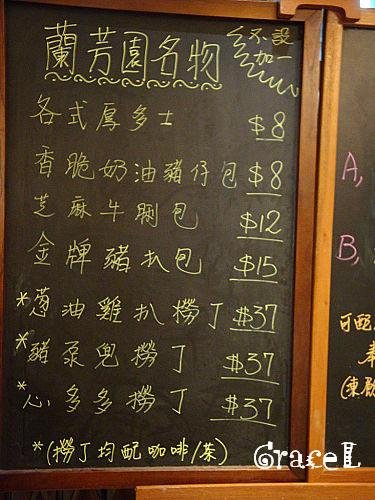 蘭芳園名物
不設
加一
各式厚多士 $8
香脆奶油豬仔包 $8
芝麻牛脷包 $12
金牌豬扒包 $15
*葱油雞扒撈丁 $37
*豬泵兜撈丁 $37
*心多多撈丁 $37
*(撈丁均配咖啡/茶)
A,
B,
可配
GraceL